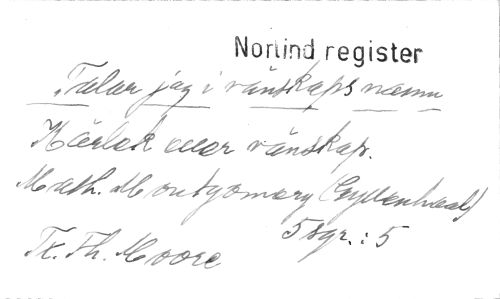 Norlind register
Talar jag i vänskaps namn
Kärlek eller vänskap.
Math. Montgomery (Gyllenhaal)
5 sgr. : 5
Tx. Th. Moore